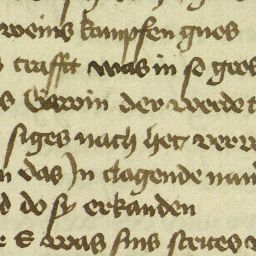 weins kampfen gnos
crafft was in so gros
Gawin der werde
siges nach het verre
das Jn clagende nan
do sy erkanden
E was sins strites